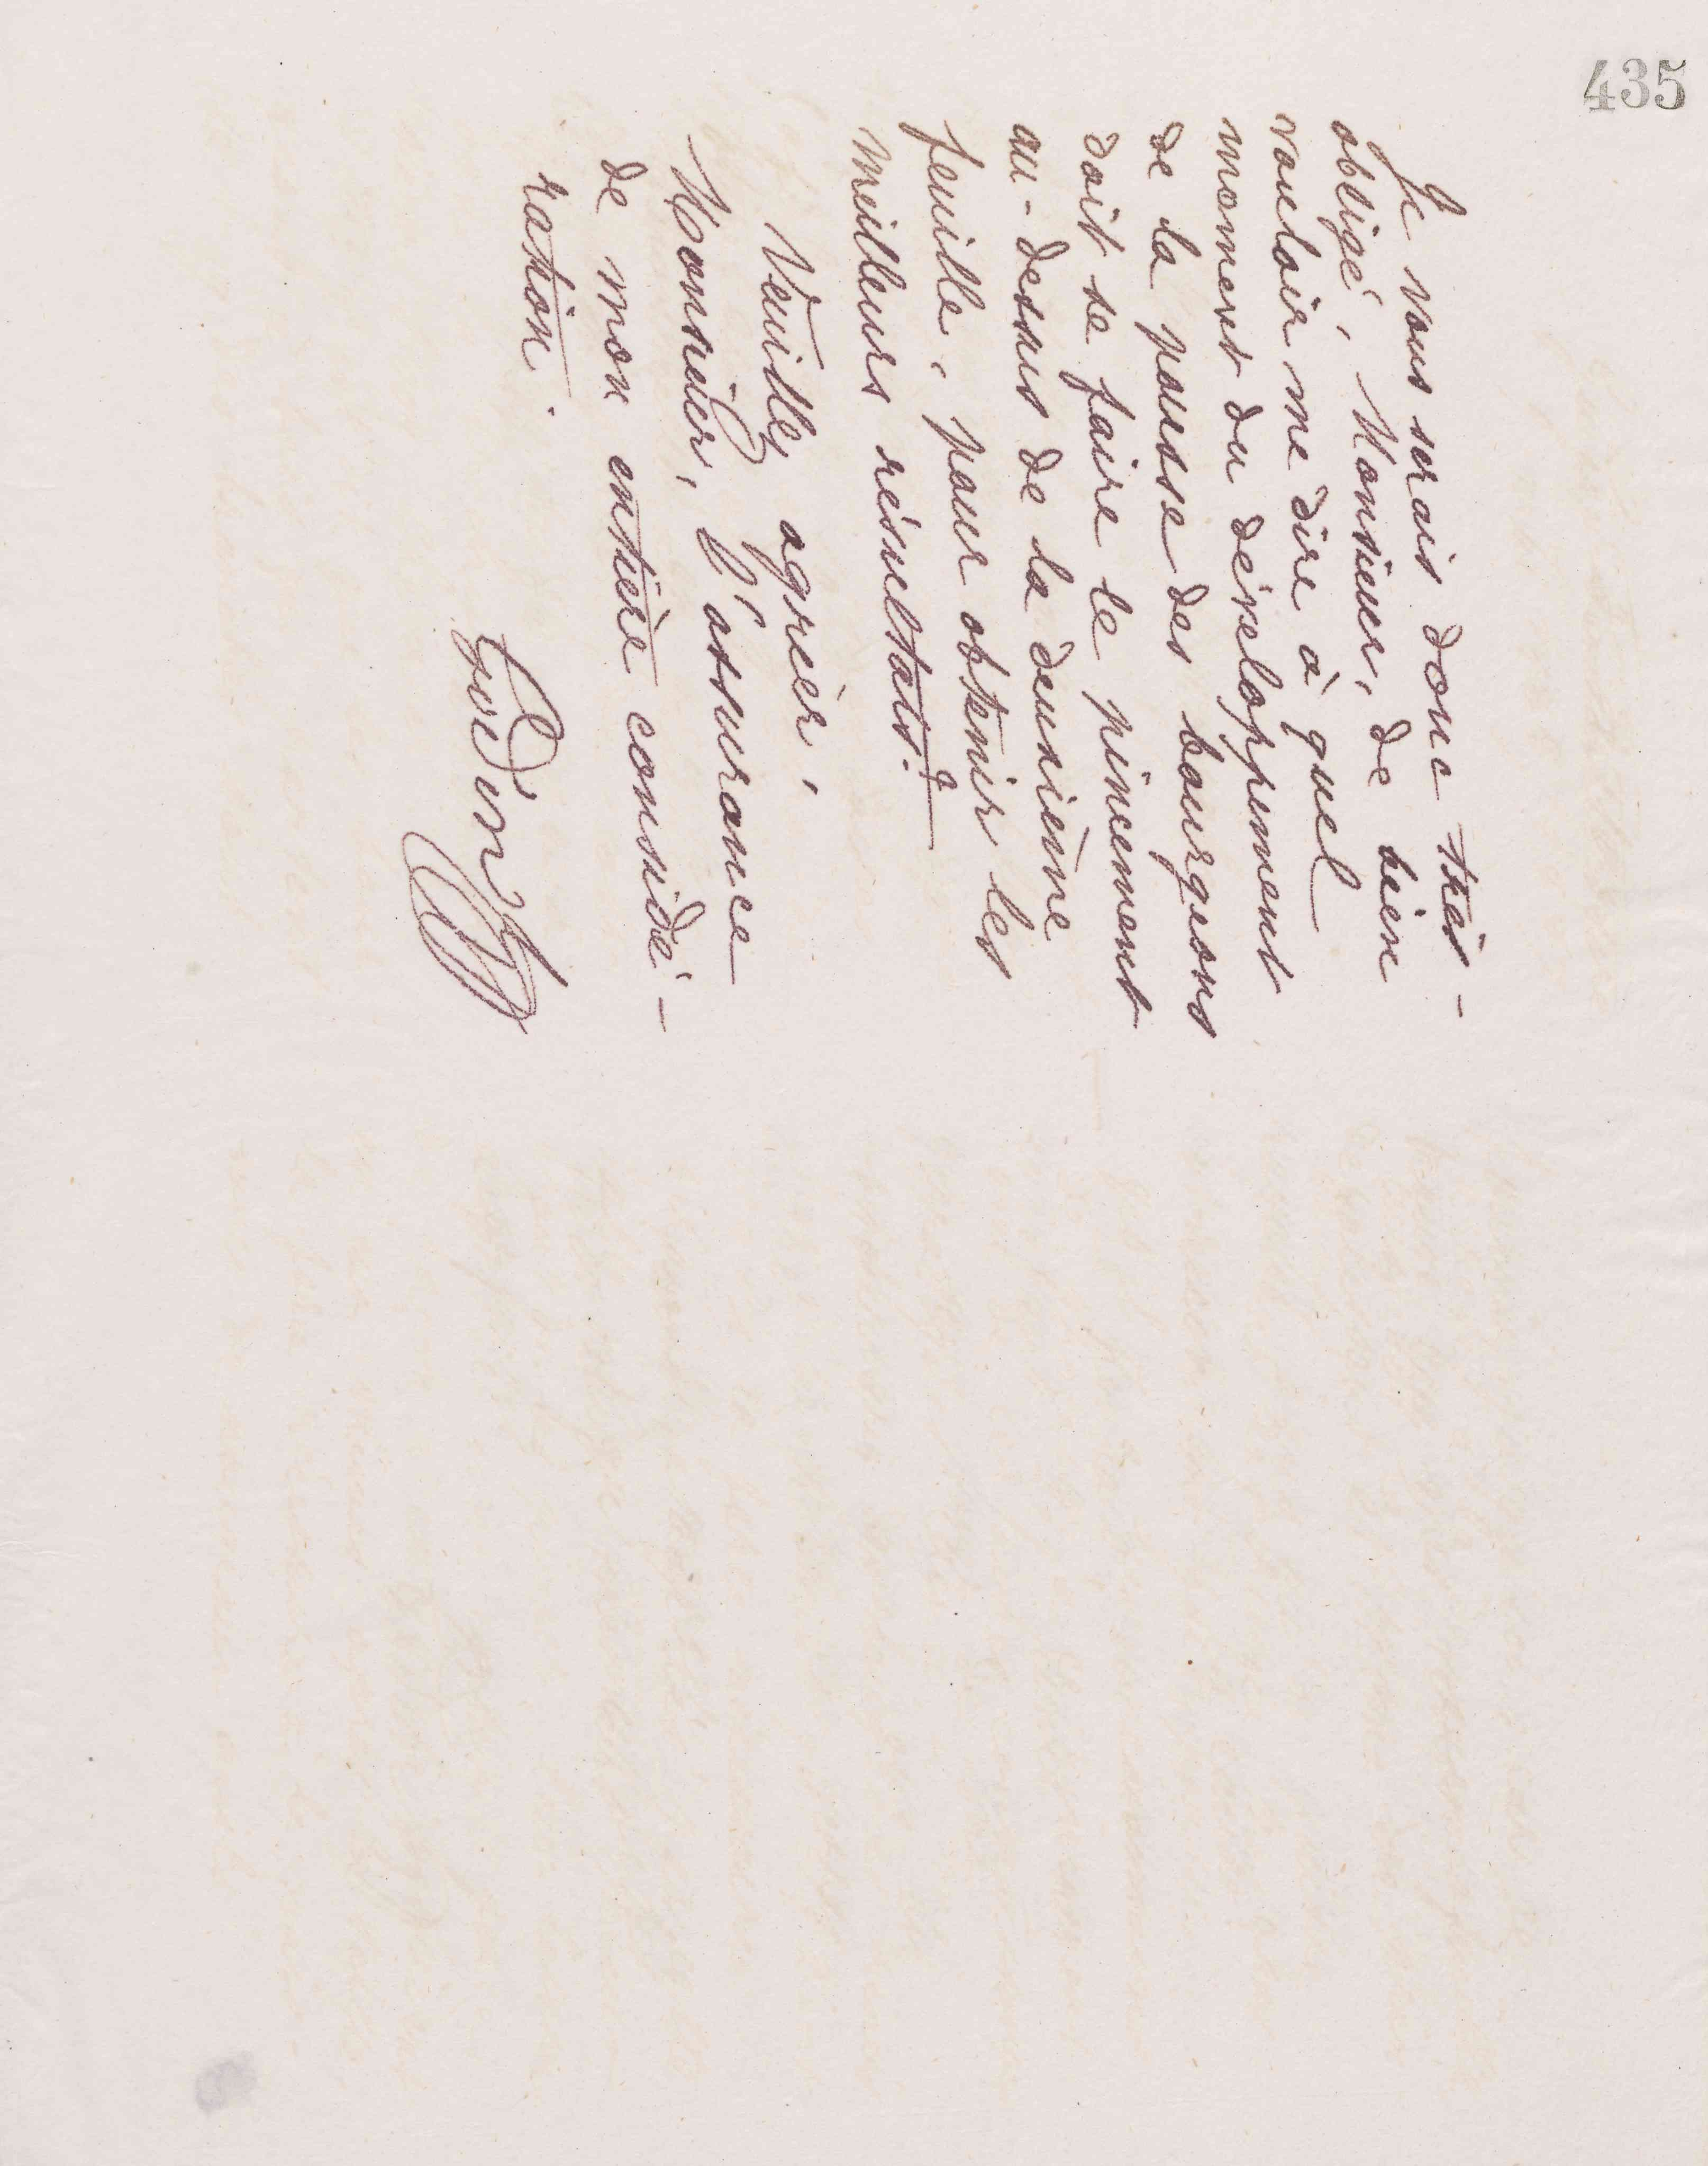 435
Je vous serais donc très-
obligé, Monsieur, de bien
vouloir me dire à quel
moment du développement
de la pousse des bourgeons
doit se faire le pincement
au-dessus de la deuxième
feuille, pour obtenir les
meilleurs résultats?
Veuillez agréer,
Monsieur, l'assurance
de mon entière considé-
ration.
Godin